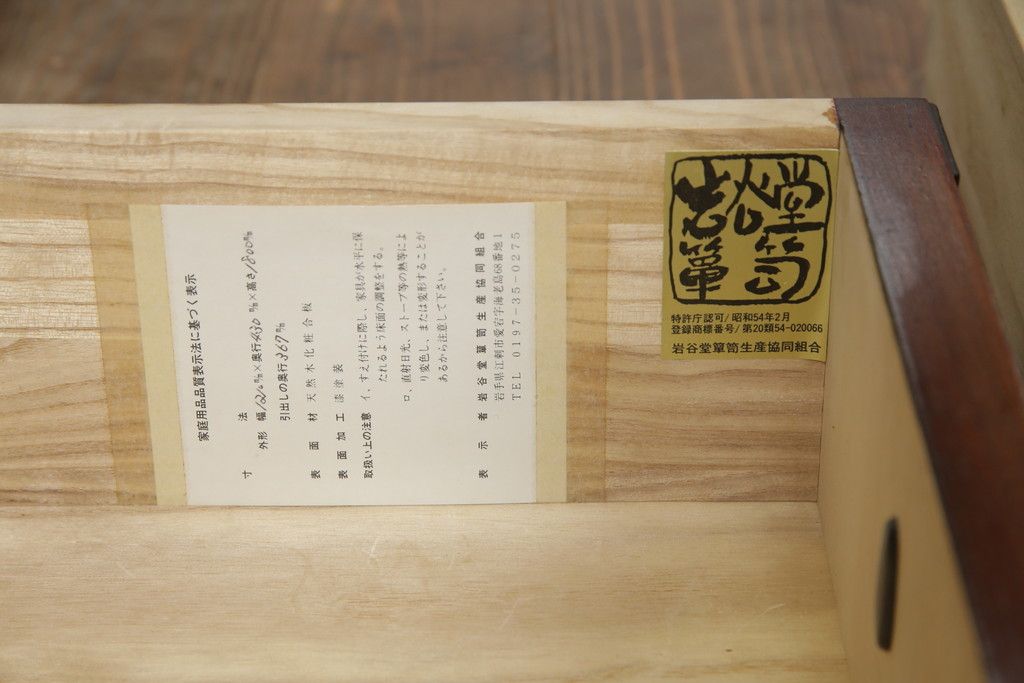 家庭用品品質表示法に基づく表示
寸法
外形 幅1210㎜×奥行430㎜×高さ1800㎜
引出しの奥行367㎜
表面材 天然木化粧合板
表面加工 漆塗装
取扱い上の注意 イ、すえ付けに際し、家具が水平に保
たれるよう床面の調整をする。
ロ、直射日光、ストーブ等の熱等によ
り変色し、または変形することが
あるから注意して下さい。
表示者 岩谷堂簞笥生産協同組合
岩手県江刺市愛宕字海老島68番地1
TEL 0197-35-0275
岩谷堂
簞笥
特許庁認可/昭和54年2月
登録商標番号/第20類54-020066
岩谷堂簞笥生産協同組合